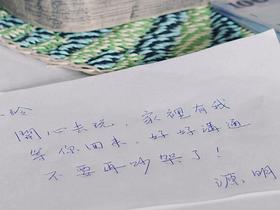 玲
開心去玩，家裡有我
等你回來，好好溝通
不要再吵架了！
源明